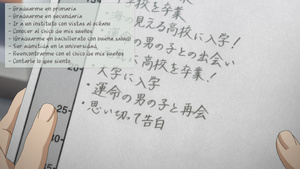 - Graduarme en primaria
- Graduarme en secundaria
- Ir a un instituto con vistas al océano
- Conocer al chico de mis sueños
- ¡Graduarme en bachillerato con buena salud!
- Ser admitida en la universidad
- Reencontrarme con el chico de mis sueños
- Contarle lo que siento
学校を卒業
・海の見える高校に入学!
の男の子との出会い
に高校を卒業!
大学に入学
・運命の男の子と再会
・思い切って告白
15-
20-
25-